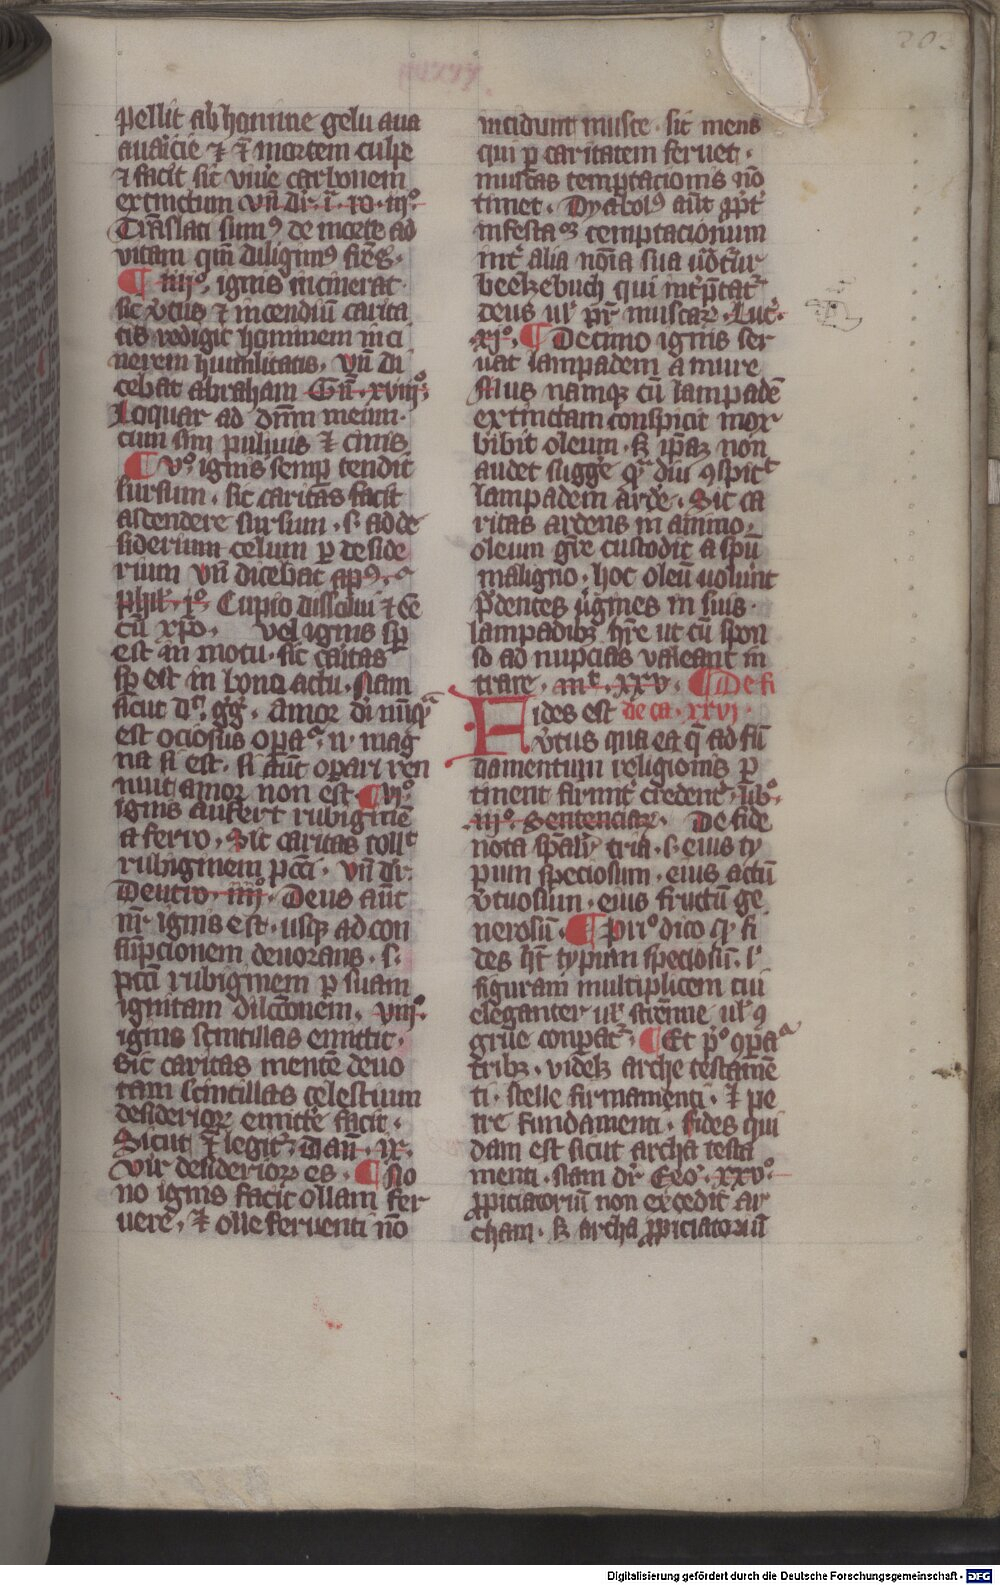 203
pellit ab homine gelu aua
auaricie ⁊ ī mortem culpe
⁊ facit sic̄ viuē carbonem
extinctum vn̄ dr̄. i. io. iijº
Translati sumꝰ de morte ad
vitam qm̄ diligimꝰ fr̄es.
¶ iiijº. ignis incinerat
sic v̄tus ⁊ incendiū carita
tis redigit hominem in ci
nerem humilitatis. vn̄ di
cebat abraham Gn̄. xviijº.
Loquar ad dn̄m meum.
cum sim puluis ⁊ cinis
¶ vº. ignis semꝑ tendit
sursum. sic caritas facit
ascendere sursum. s. ad de
siderium celum ꝑ deside
rium vn̄ dicebat apꝰ.
phil. jº. Cupio dissolui ⁊ eē
cū xp̄o. vel ignis sꝑ
est in motu. sic caitas
sꝑ est in bono actu. Nam
sicut dᵗ. g̾g̾. Amor di nūqᵃ
est ociosus oꝑaᵗ. n. mag
na si est. si aūt operari ren
nuit amor non est. ¶ vjº.
ignis aufert rubiginē
a ferro. Sic caritas tollᵗ
rubiginem pcc̄i. vn̄ dr̄.
Deutro. iiijº. Deus aūt
nr̄ ignis est. usqꝫ ad con
sūpcionem deuorans. s.
pcc̄i rubiginem ꝑ suam
ignitam dilcc̄onem. viijº.
ignis scintillas emittit.
Sic caritas mentē deuo
tam scintillas celestium
desiderioꝝ emittē facit.
Sicut ī legitᵣ. Dan̄. ix.
vir desiderioꝝ es. ¶ No
no ignis facit ollam fer
uerē. ⁊ olle feruenti nō
incidunt musce. sic mens
qui ꝑ caritatem feruet.
muscas temptacionis nō
timet. Dyabolꝰ aūt ꝓpt̄
infestaꝫ temptacionum
int̄ alia noīa sua v̄dct̄ur
beelzebuch qui int̄p̄tatᵣ
deus ul̓ pr̄ muscaꝝ. Luc̄.
xjº. ¶ Decimo ignis ser
uat lampadem a mure
Mus namqꝫ cū lampadē
extinctam conspicit mox
bibit oleum. sꝫ ip̄aꝫ non
audet suggē qᵃdiu ꝯspicᵗ
lampadem ardē. Sic ca
ritas ardens in animo.
oleum gr̄e custodit a spū
maligno. hoc oleū uolūt
p̄dentes v̓gines in suis.
lampadibꝫ hr̄e ut cū spon
so ad nupcias valeant in
trare. mᵗ. xxv. ¶ De fi
Fides est de ca. xxvj
v̄tus qua ea q̄ ad fū
damentum religionis ꝑ
tinent firmit̄ credentᵣ. ubº.
iijº. Sentenciaꝝ. De fide
nota spāliᵗ tria. s. eius ty
pum speciosum. eius actū
v̄tuosum. eius fructū ge
nerosū. ¶ Priº dico qꝫ fi
des hꝫt typum speciosū. l̓
figuram multiplicem cui
eleganter ul̓ sciēnie ul̓ ꝯ
grue conpatᵣ. ¶ Et pº ꝯꝑaᵗ
tribꝫ. videlꝫ arche testamē
ti. stelle firmamenti. ⁊ pe
tre fundamenti. Fides qui
dam est sicut archa testa
menti. Nam dr̄ Exoº. xxvº.
ꝓpiciatoriū non excedit ar
cham. sꝫ archa ꝓpiciatoriū
Digitalisierung gefördert durch die Deutsche Forschungsgemeinschaft - DFG